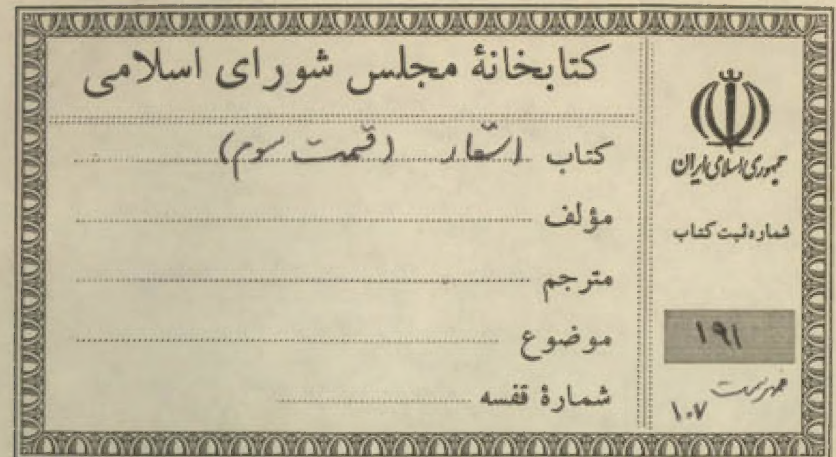 کتابخانهٔ مجلس شورای اسلامی
کتاب اشعار (قسمت سوم)
مؤلف
مترجم
موضوع
شمارهٔ قفسه
جمهوری اسلامی ایران
شماره ثبت کتاب
۱۹۱
فهرست
۱۰۷